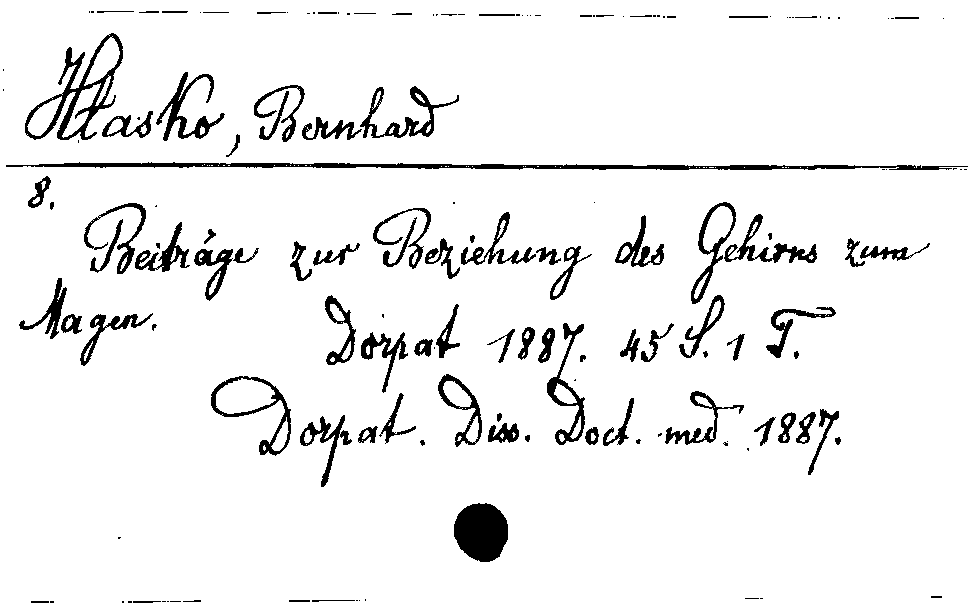 Hłasko, Bernhard
8.
Beiträge zur Beziehung des Gehirns zum
Magen.
Dorpat 1887. 45 S. 1 T.
Dorpat. Diss. Doct. med. 1887.